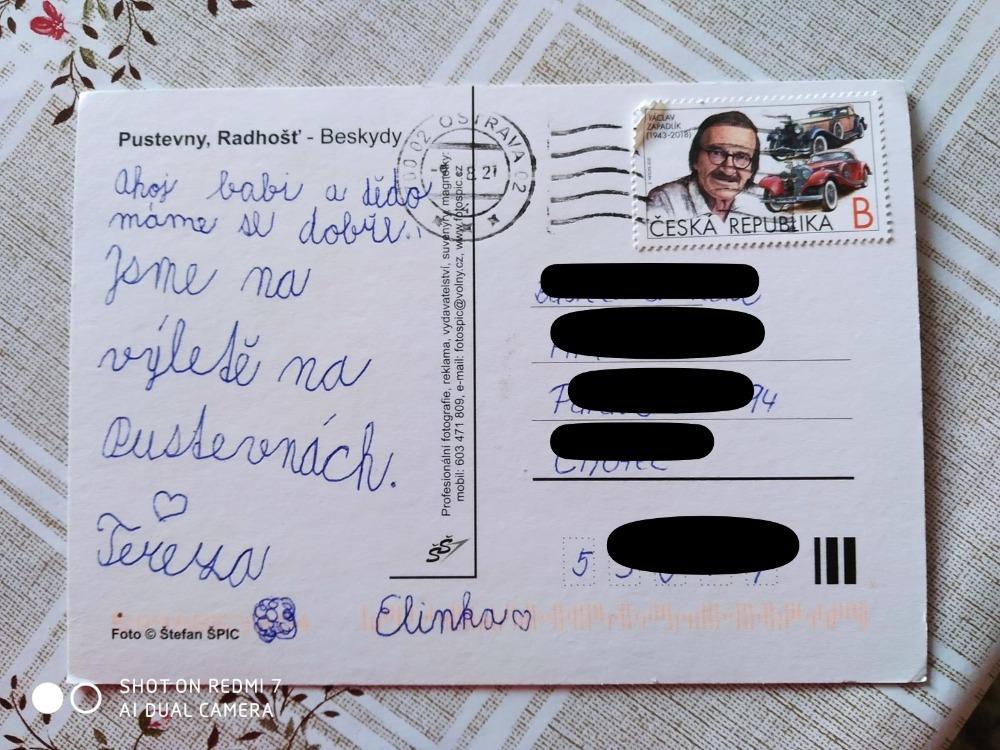 Pustevny, Radhošť - Beskydy
Ahoj babi a dědo
máme se dobře.
Jsme na
výletě na
Pustevnách.
Tereza
Elinka
Foto © Štefan ŠPIC
Profesionální fotografie, reklama, vydavatelství, suvenýry, magnetky;
mobil: 603 471 809, e-mail: fotospic@volny.cz, www.fotospic.cz
OSTRAVA 02
VÁCLAV
ZAPADLÍK
(1943-2018)
ČESKÁ REPUBLIKA B
94
5
SHOT ON REDMI 7
AI DUAL CAMERA